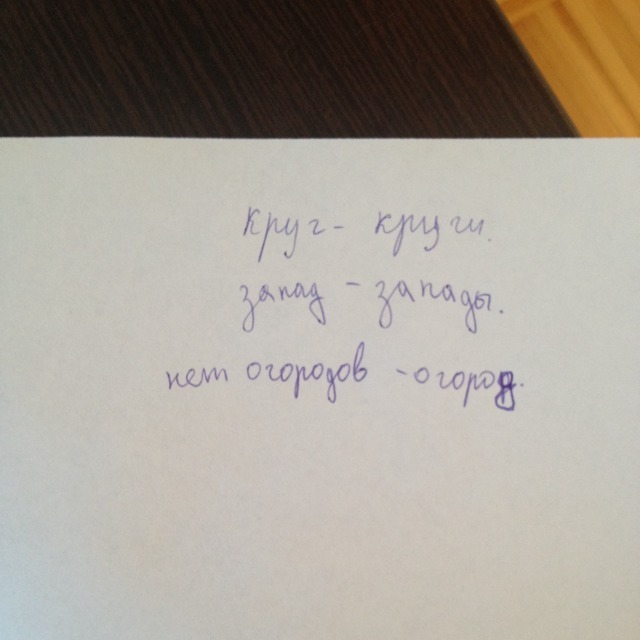 круг - круги.
запад - запады.
нет огородов - огород.